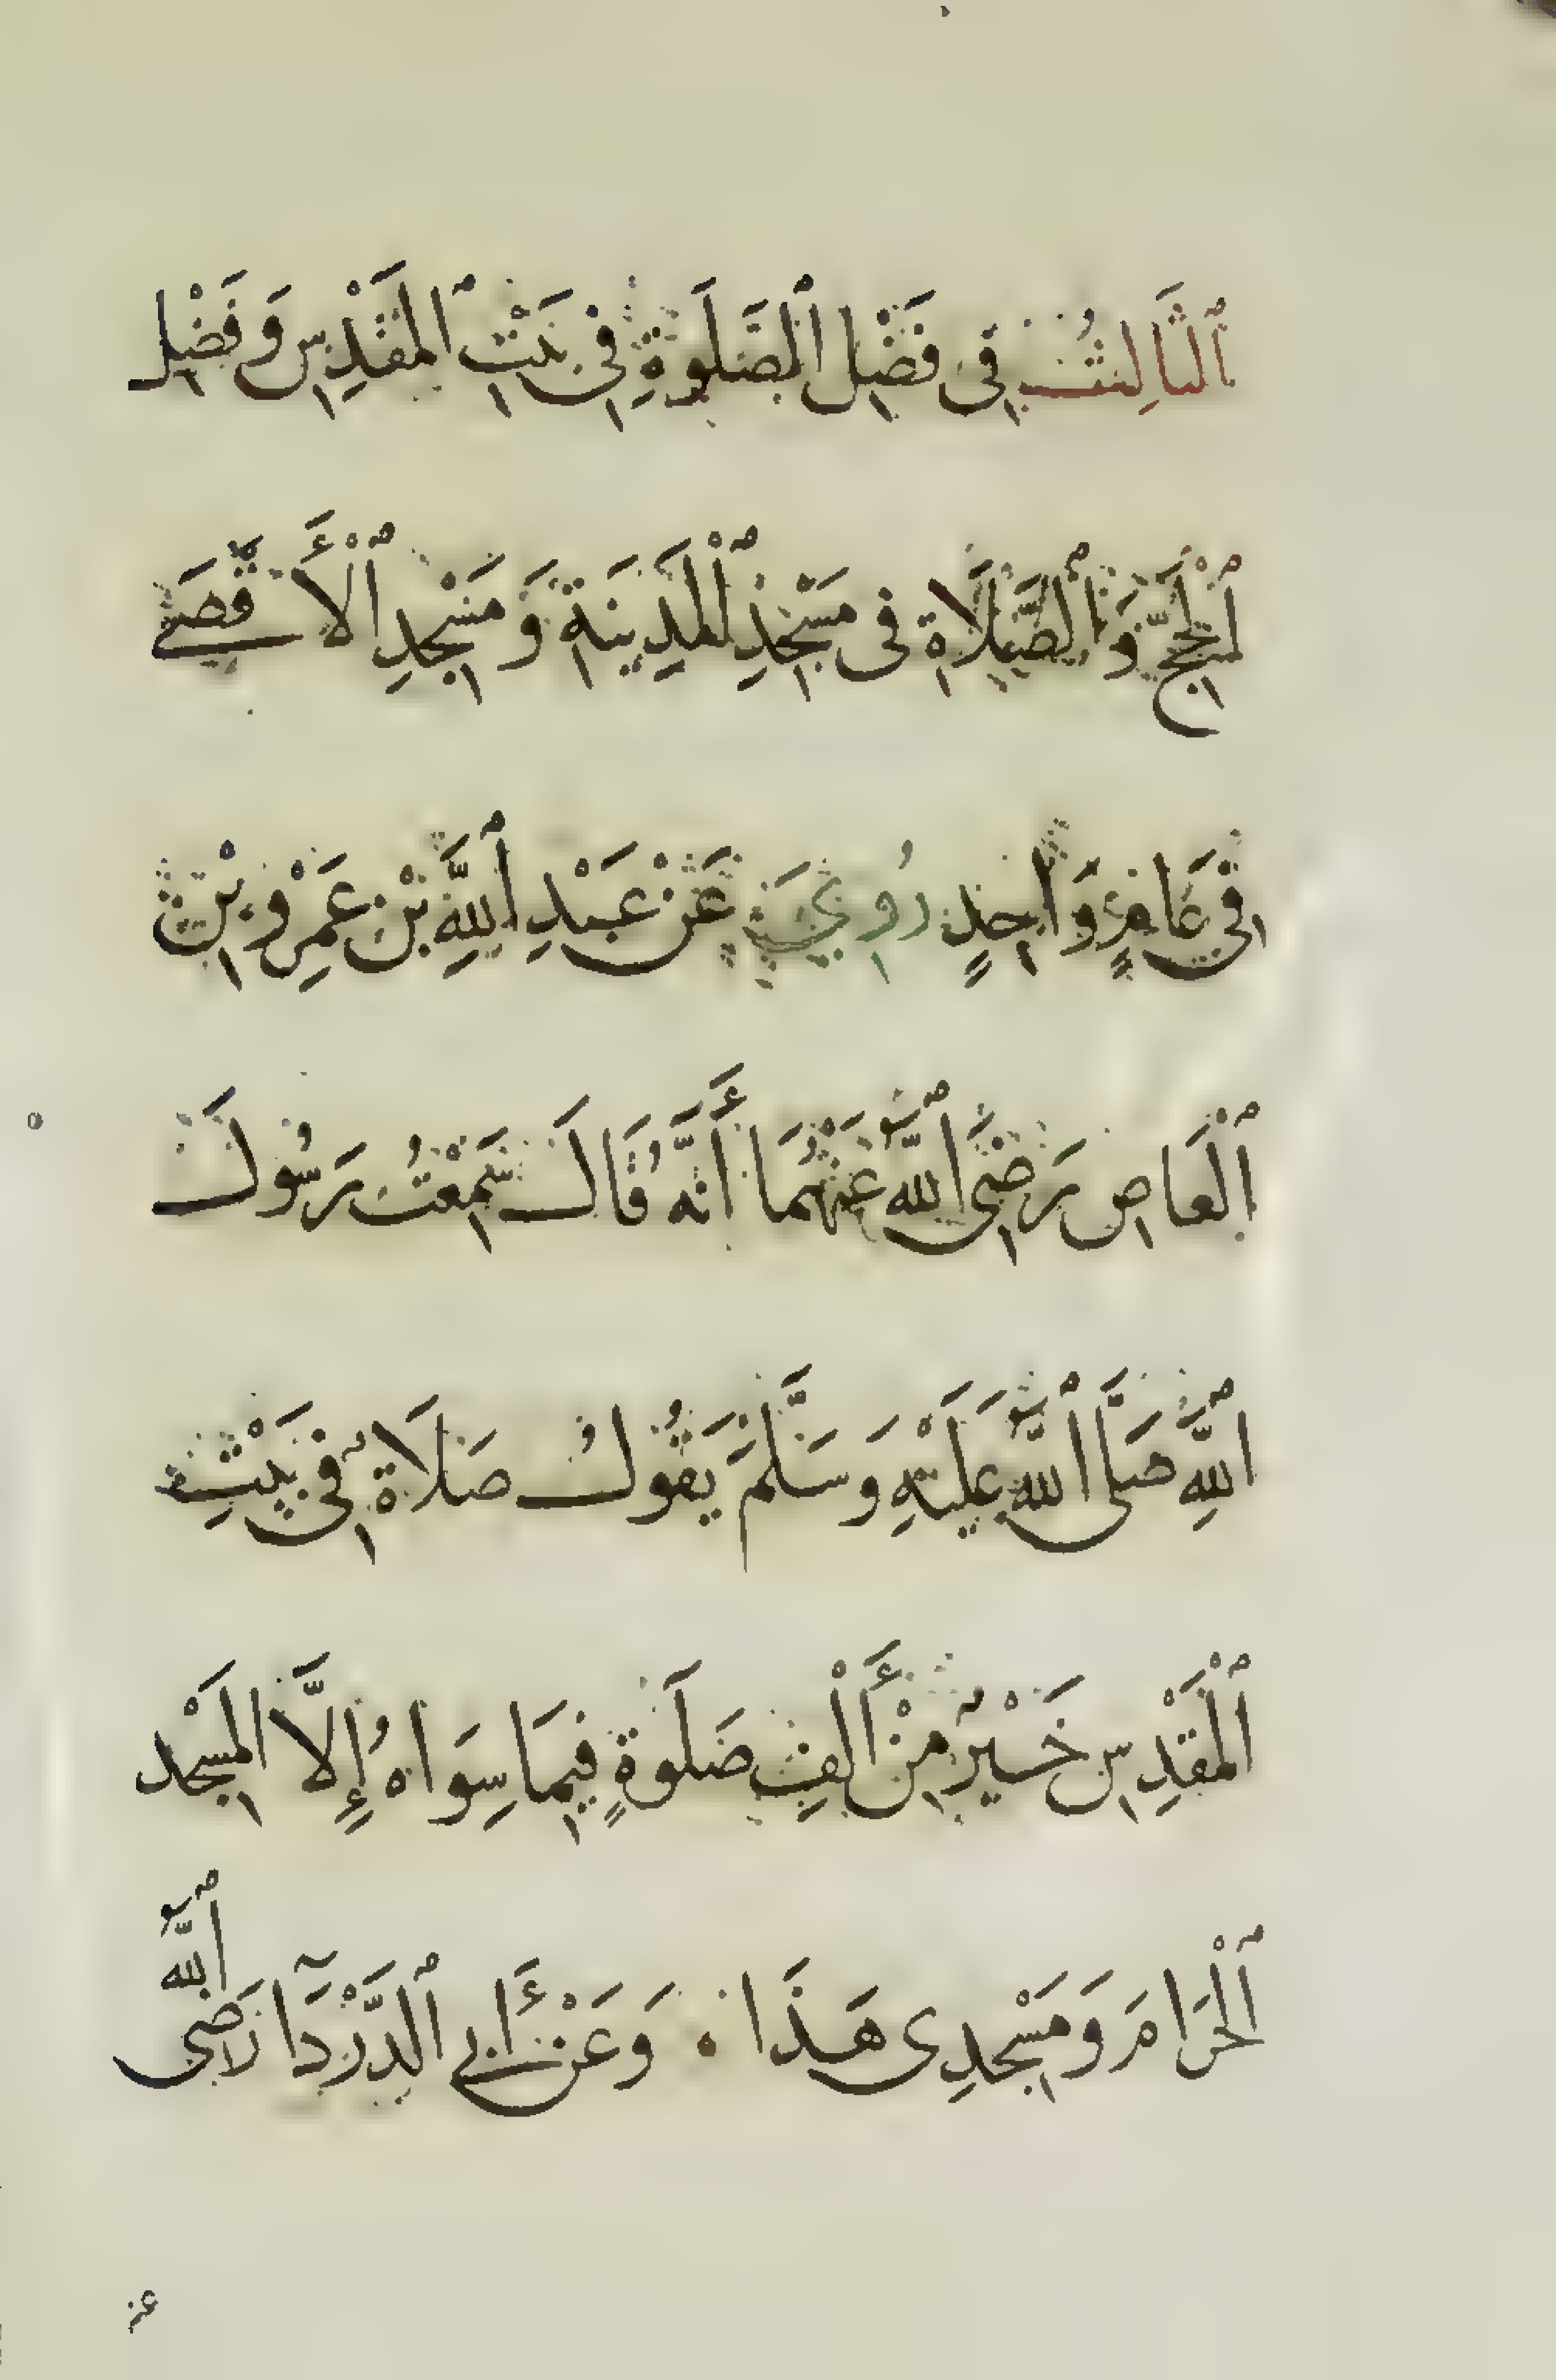 ٱلثَّالِثُ فِى فَضْلِ ٱلصَّلَوةِ فِى بَيْتِ ٱلْمَقْدِسِ وَفَضْلِ
ٱلْحَجِّ وَٱلصَّلَاةِ فِى مَسْجِدِ ٱلْمَدِينَةِ وَمَسْجِدِ ٱلْأَقْصَى
فِى عَامٍ وَاحِدٍ رُوِيَ عَنْ عَبْدِ ٱللَّهِ بْنِ عَمْرِو بْنِ
ٱلْعَاصِ رَضِىَ ٱللَّهُ عَنْهُمَا أَنَّهُ قَالَ سَمِعْتُ رَسُولَ
ٱللَّهِ صَلَّى ٱللَّهُ عَلَيْهِ وَسَلَّمَ يَقُولُ صَلَاةٌ فِى بَيْتِ
ٱلْمَقْدِسِ خَيْرٌ مِنْ أَلْفِ صَلَوةٍ فِيمَا سِوَاهُ إِلَّا الْمَسْجِد
ٱلْحَرَامَ وَمَسْجِدِى هَذَا . وَعَنْ أَبِي ٱلدَّرْدَآ رَضِىَ ٱللَّهُ
عنه